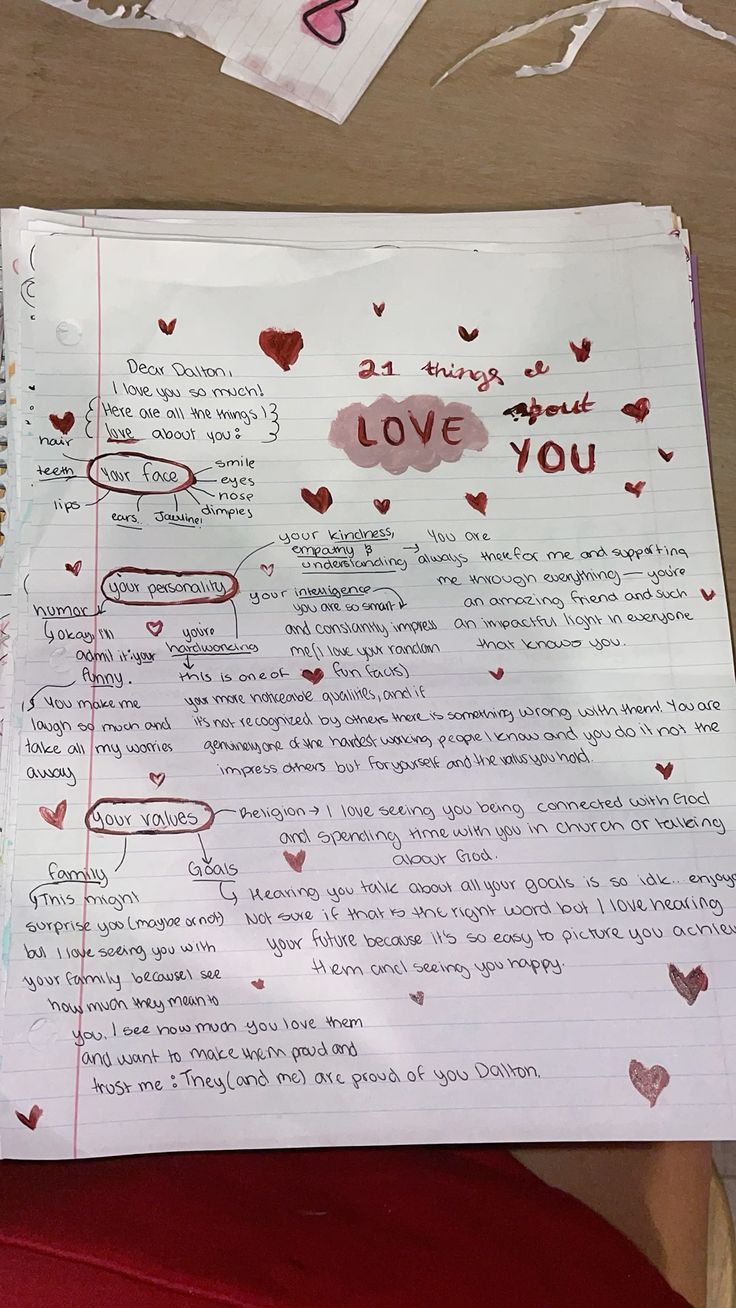 Dear Dalton,
I love you so much!
Here are all the things I
love about you:
21 things I
LOVE about
YOU
your face
hair
teeth
lips
ears
Jawline!
dimples
nose
eyes
smile
your personality
your kindness,
empathy &
understanding → You are
always there for me and supporting
me through everything — you're
an amazing friend and such
an impactful light in everyone
that knows you.
your intelligence
you are so smart
and constantly impress
me(I love your random
fun facts)
humor
okay I'll
admit it: your
funny.
You make me
laugh so much and
take all my worries
away
you're
hardworking
this is one of
your more noticeable qualities, and if
it's not recognized by others there is something wrong with them! You are
genuinely one of the hardest working people I know and you do it not the
impress others but for yourself and the values you hold.
your values
Religion → I love seeing you being connected with God
and spending time with you in church or talking
about God.
family
This might
surprise you (maybe or not)
but I love seeing you with
your family because I see
how much they mean to
you. I see how much you love them
and want to make them proud and
trust me: They (and me) are proud of you Dalton.
Goals
Hearing you talk about all your goals is so idk.. enjoye
Not sure if that is the right word but I love hearing
your future because it's so easy to picture you achie
them and seeing you happy.